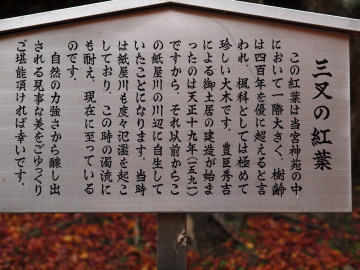 三叉の紅葉
この紅葉は当宮神苑の中
において一際大きく、樹齢
は四百年を優に超えると言
われ、楓科としては極めて
珍しい大木です。豊臣秀吉
による御土居の建造が始ま
ったのは天正十九年(一五九一)
ですから、それ以前からこ
の紙屋川の川辺に自生して
いたことになります。当時
は紙屋川も度々氾濫を起こ
しており、この時の濁流に
も耐え、現在に至っている
のです。
自然の力強さから醸し出
される見事な美をごゆっくり
ご堪能頂ければ幸いです。